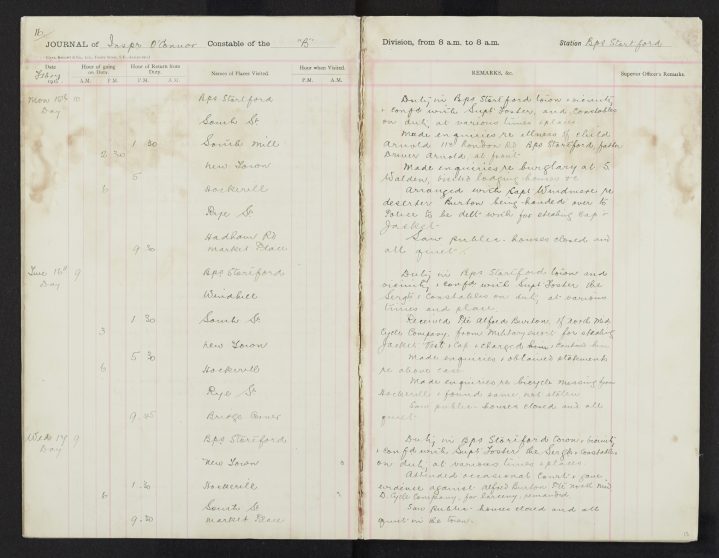 16
JOURNAL of Inspr O'Connor Constable of the "B"
Date
Hour of going on Duty.
Hour of Return from Duty.
Names of Places Visited.
Hour when Visited.
A.M. P.M. P.M. A.M.
P.M. A.M.
Mon 15th 10 Bps Stortford
Day
South St
1 30 South Mill
2 30
New Town
5
6 Hockerill
Rye St
Hadham Rd
9 30 Market Place
Tue 16th 9 Bps Stortford
Day
Windhill
1 30 South St
3
New Town
5 30
6 Hockerill
Rye St
9 45 Bridge
Wed 17 9 Bps Stortford
Day
New Town
1 30 Hockerill
6
South St
9 30 Market Place
Division, from 8 a.m. to 8 a.m. Station Bps Stortford
REMARKS, &c.
Superior Officer's Remarks.
Duty in Bps Stortford town & vicinity
& conf'd with Supt Foster, and Constables
on duty at various times & places
Made enquiries re illness of child
Arnold London Rd Bps Stortford, father
Driver Arnold at front
Made enquiries re burglary at S.
Walden, visited lodging houses &c
Arranged with Capt Windmore re
deserter Burton being handed over to
Police to be delt with for stealing cap &
Jacket
Saw public houses closed and
all quiet.
Duty in Bps Stortford town and
vicinity & conf'd with Supt Foster the
Sergts & Constables on duty at various
times and place.
Received Pte Alfred Burton, of North Mid
Cycle Company, from Military escort for stealing
Jacket Vest & Cap & charged him
Made enquiries & obtained statements
re above case
Made enquiries re bicycle missing from
Hockerill & found same not stolen
Saw public houses closed and all
quiet
Duty in Bps Stortford town & vicinity
& conf'd with Supt Foster the Sergts & Constables
on duty at various times & places.
Attended occasional Court & gave
evidence against Alfred Burton Pte North Mid
D. Cycle Company, for larceny, remanded.
Saw public houses closed and all
quiet in the town.